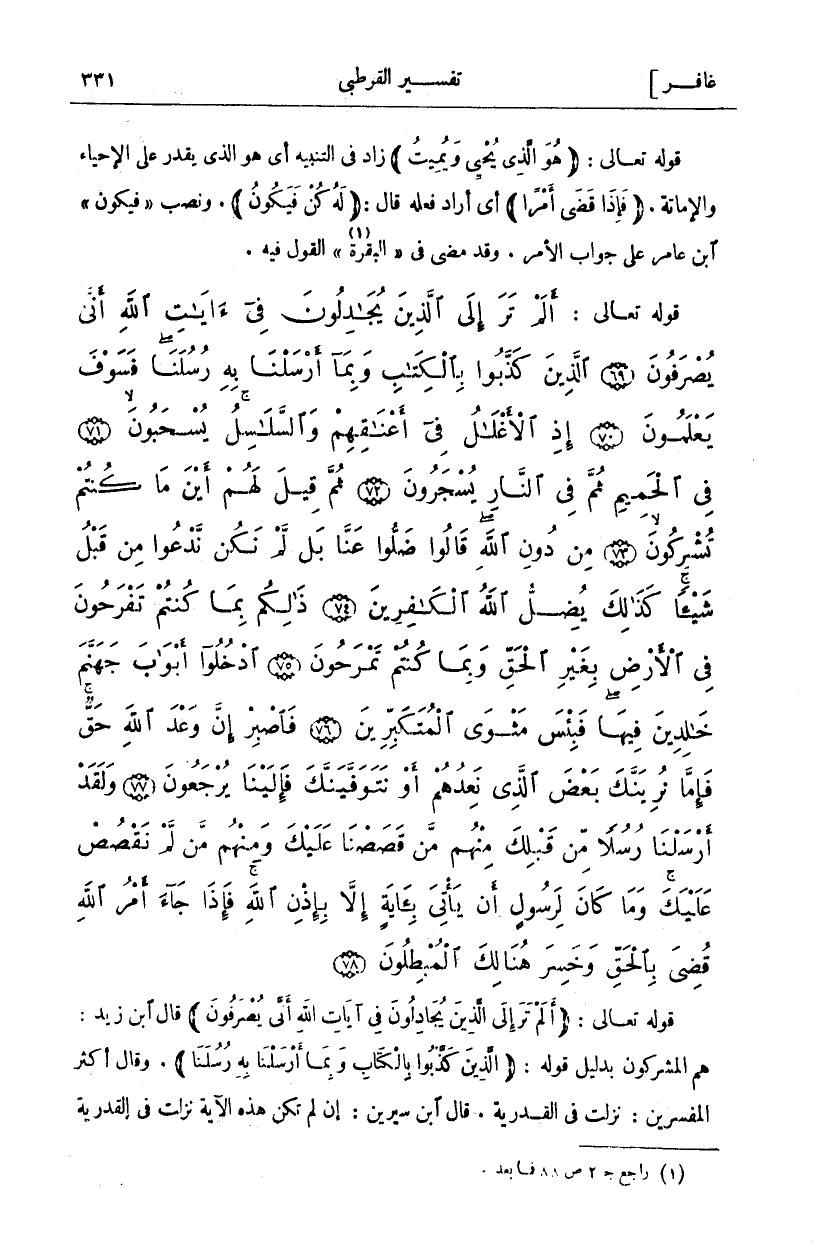 غافر] تفسير القرطبى ٣٣١
قوله تعالى : ﴿ هُوَ الَّذِى يُحْيِي وَيُمِيتُ ﴾ زاد فى التنبيه أى هو الذى يقدر على الإحياء
والإماتة . ﴿ فَإِذَا قَضَى أَمْرًا ﴾ أى أراد فعله قال : ﴿ لَهُ كُنْ فَيَكُونُ ﴾ . ونصب « فيكون »
ٱبن عامر على جواب الأمر . وقد مضى فى « البقرة (١) » القول فيه .
قوله تعالى : أَلَمْ تَرَ إِلَى ٱلَّذِينَ يُجَـٰدِلُونَ فِىٓ ءَايَـٰتِ ٱللَّهِ أَنَّىٰ
يُصْرَفُونَ ﴿٦٩﴾ ٱلَّذِينَ كَذَّبُوا بِٱلْكِتَـٰبِ وَبِمَآ أَرْسَلْنَا بِهِۦ رُسُلَنَا ۖ فَسَوْفَ
يَعْلَمُونَ ﴿٧٠﴾ إِذِ ٱلْأَغْلَـٰلُ فِىٓ أَعْنَـٰقِهِمْ وَٱلسَّلَـٰسِلُ يُسْحَبُونَ ﴿٧١﴾
فِى ٱلْحَمِيمِ ثُمَّ فِى ٱلنَّارِ يُسْجَرُونَ ﴿٧٢﴾ ثُمَّ قِيلَ لَهُمْ أَيْنَ مَا كُنتُمْ
تُشْرِكُونَ ﴿٧٣﴾ مِن دُونِ ٱللَّهِ ۖ قَالُوا ضَلُّوا عَنَّا بَل لَّمْ نَكُن نَّدْعُوا مِن قَبْلُ
شَيْـًٔا ۚ كَذَٰلِكَ يُضِلُّ ٱللَّهُ ٱلْكَـٰفِرِينَ ﴿٧٤﴾ ذَٰلِكُم بِمَا كُنتُمْ تَفْرَحُونَ
فِى ٱلْأَرْضِ بِغَيْرِ ٱلْحَقِّ وَبِمَا كُنتُمْ تَمْرَحُونَ ﴿٧٥﴾ ٱدْخُلُوٓا أَبْوَٰبَ جَهَنَّمَ
خَـٰلِدِينَ فِيهَا ۖ فَبِئْسَ مَثْوَى ٱلْمُتَكَبِّرِينَ ﴿٧٦﴾ فَٱصْبِرْ إِنَّ وَعْدَ ٱللَّهِ حَقٌّ ۚ
فَإِمَّا نُرِيَنَّكَ بَعْضَ ٱلَّذِى نَعِدُهُمْ أَوْ نَتَوَفَّيَنَّكَ فَإِلَيْنَا يُرْجَعُونَ ﴿٧٧﴾ وَلَقَدْ
أَرْسَلْنَا رُسُلًا مِّن قَبْلِكَ مِنْهُم مَّن قَصَصْنَا عَلَيْكَ وَمِنْهُم مَّن لَّمْ نَقْصُصْ
عَلَيْكَ ۗ وَمَا كَانَ لِرَسُولٍ أَن يَأْتِىَ بِـَٔايَةٍ إِلَّا بِإِذْنِ ٱللَّهِ ۚ فَإِذَا جَآءَ أَمْرُ ٱللَّهِ
قُضِىَ بِٱلْحَقِّ وَخَسِرَ هُنَالِكَ ٱلْمُبْطِلُونَ ﴿٧٨﴾
قوله تعالى : ﴿ أَلَمْ تَرَ إِلَى الَّذِينَ يُجَادِلُونَ فِى آيَاتِ اللهِ أَنَّى يُصْرَفُونَ ﴾ قال ٱبن زيد :
هم المشركون بدليل قوله : ﴿ الَّذِينَ كَذَّبُوا بِالْكِتَابِ وَبِمَا أَرْسَلْنَا بِهِ رُسُلَنَا ﴾ . وقال أكثر
المفسرين : نزلت فى القدرية . قال ٱبن سيرين : إن لم تكن هذه الآية نزلت فى القدرية
(١) راجع جـ ٢ ص ٨٨ فما بعد .